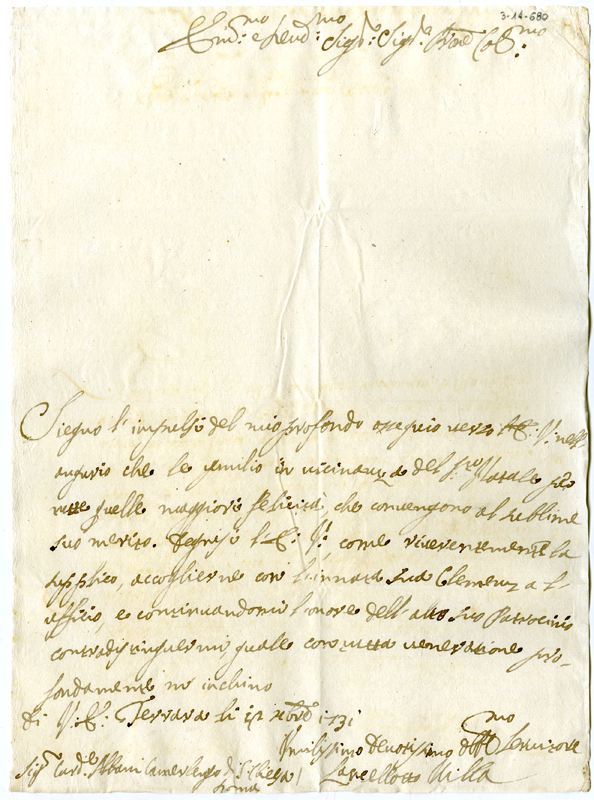 3-14-680
Em.mo e Rev.mo Sig.r Sig.r P.ron Col.mo
Sieguo l'impulsi del mio profondo ossequio verso l'E. V. nell'
augurio che le umilio in vicinanza del S.to Natale per
tutte quelle maggiori felicità, che convengono al sublime
suo merito. Degnisi l'E. V., come riverentemente la
supplico, accoglierne con l'innata sua Clemenza l'
ufficio, e continuandomi l'onore dell'alto suo Patrocinio
contradistinguermi, quale con tutta veneratione pro-
fondamente m'inchino
di V. E. Ferrara li 12 xbre 1731
Umilissimo Devotissimo Obb.mo Servitore
Sig.r Card.le Albani Camerlengo di S. Chiesa / Lancellotto Villa
Roma